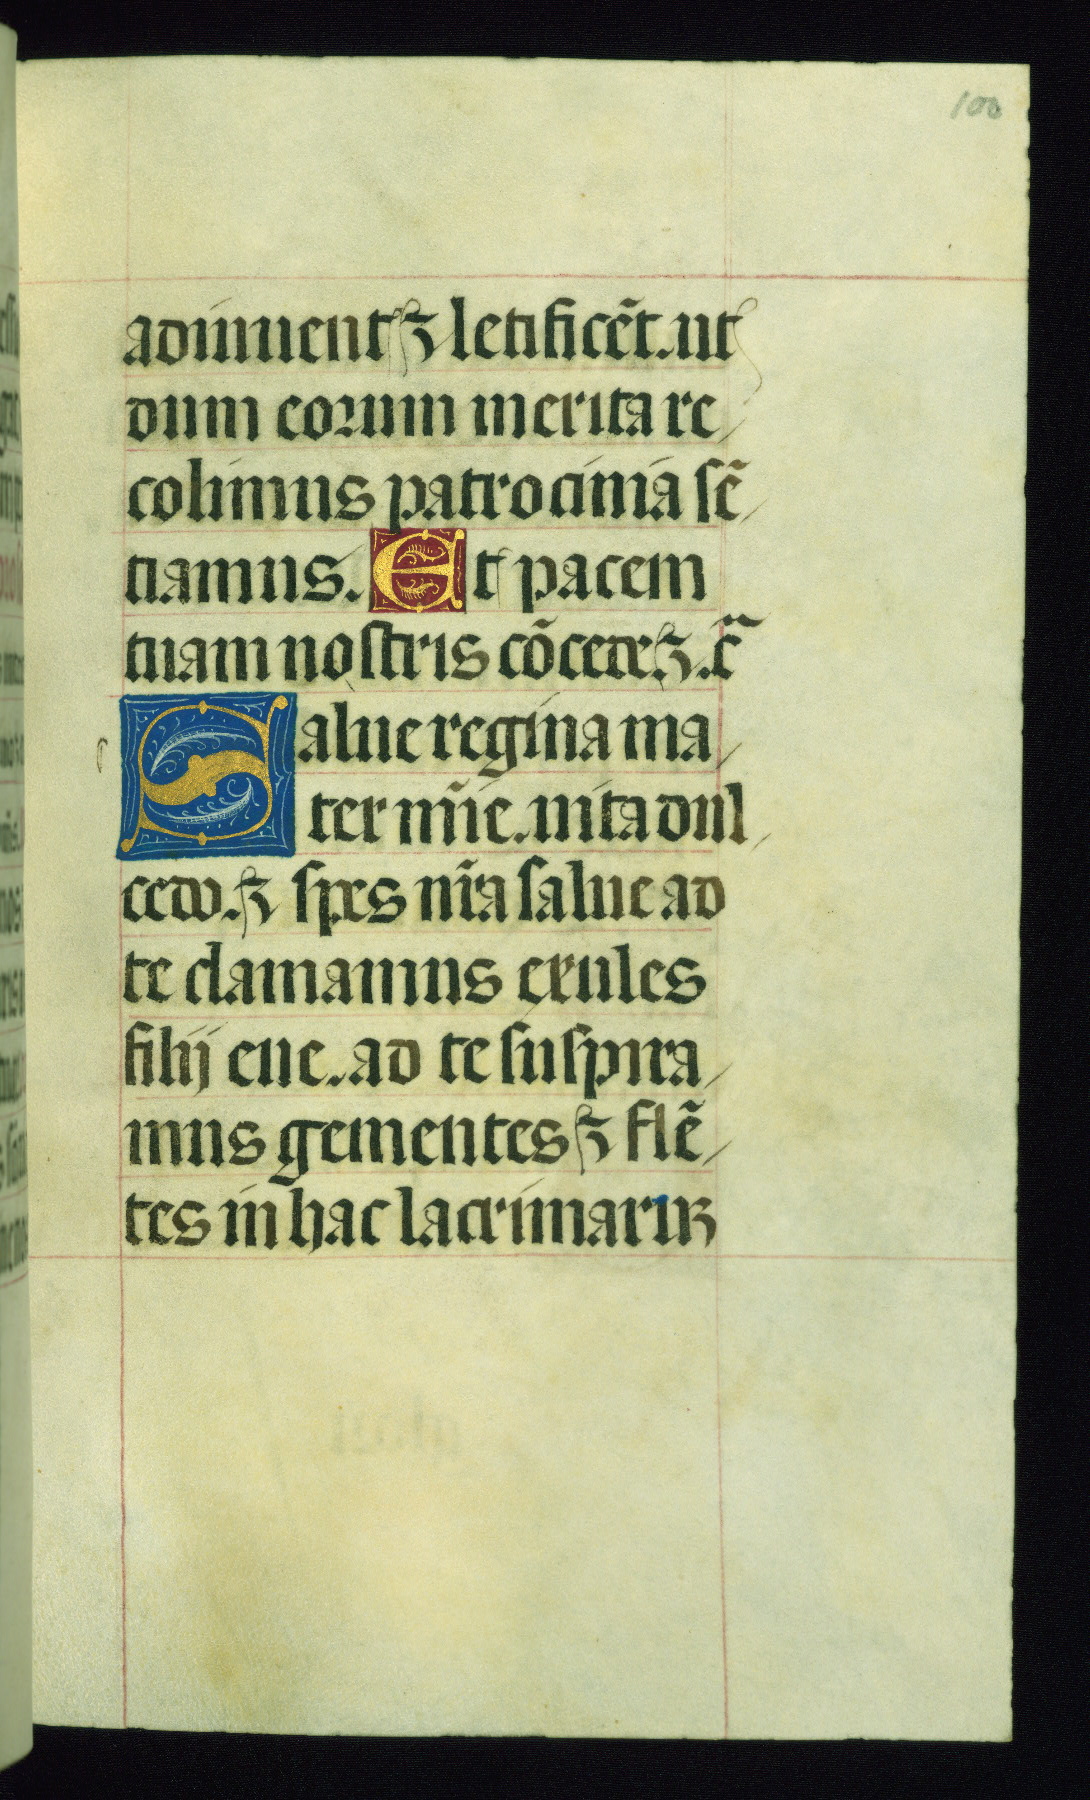 100
adiuuent ⁊ letificẽt. ut
dum eorum merita re
colimus patrocinia sẽ
tiamus. Et pacem
tuam nostris cõcede ⁊. c̃
Salue regina ma
ter mĩe. uita dul
cedo. ⁊ spes nr̃a salue ad
te clamamus exules
filij eue. ad te suspira
mus gementes ⁊ flẽ
tes in hac lacrimarꝝ